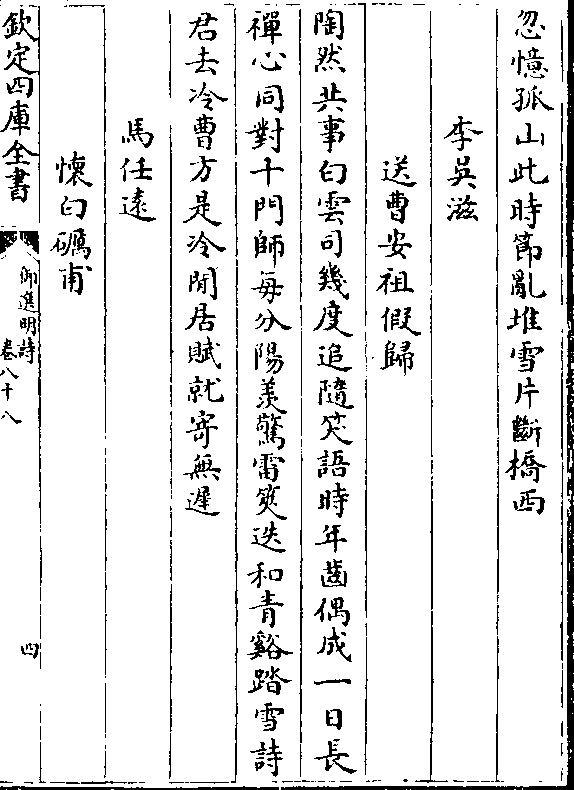 忽憶孤山此時節亂堆雪片斷橋西
李吳滋
送曹安祖假歸
陶然共事白雲司幾度追隨笑語時年齒偶成一日長
禪心同對十門師每分陽羨驚雷筴迭和青谿踏雪詩
君去冷曹方是冷閒居賦就寄無遲
馬任遠
懷白礪甫
欽定四庫全書
御選明詩
卷八十八
四